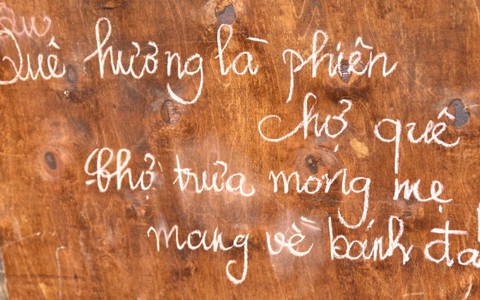 Quê hương là phiên
chợ quê
Chợ trưa mong mẹ
mang về bánh đa